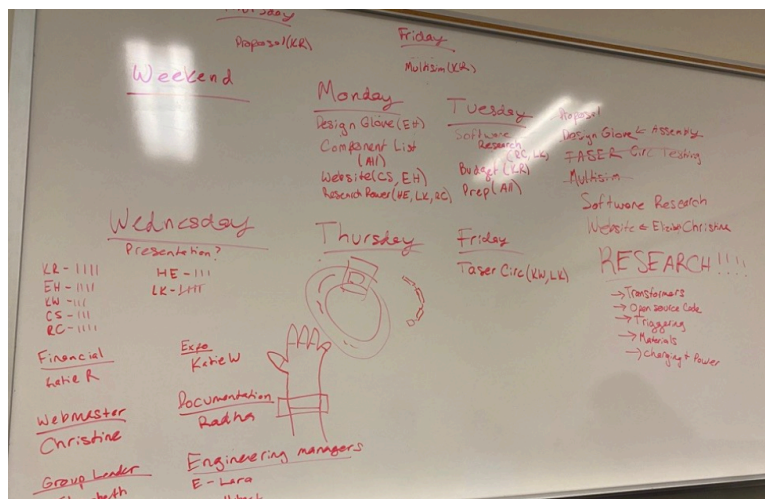 Thursday
Proposal (KR)
Friday
Multisim (KR)
Weekend
Monday
Design Glove (EH)
Component List
(All)
Website (CS, EH)
Research Power (HE, LK, RC)
Tuesday
Software
Research
(RC, LK)
Budget (KR)
Prep (All)
Proposal
Design Glove ← Assembly
TASER Circ Testing
Multisim
Software Research
Website ←
Christine
RESEARCH!!!!
→ Transformers
→ Open source Code
→ Triggering
→ Materials
→ Charging + Power
Wednesday
Presentation?
KR - IIII
EH - IIII
KW - III
CS - III
RC - IIII
HE - III
LK - IIII
Thursday
Friday
Taser Circ (KW, LK)
Financial
Katie R
Webmaster
Christine
Group Leader
Expo
Katie W
Documentation
Radha
Engineering managers
E - Lara